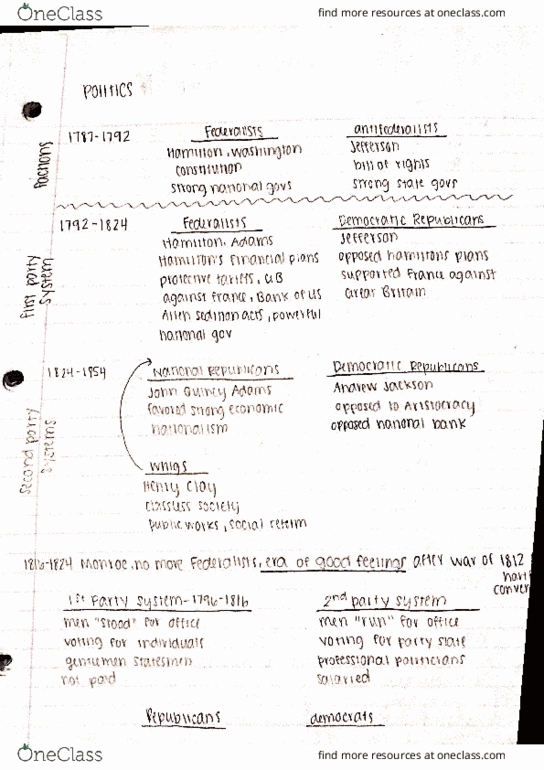 OneClass
find more resources at oneclass.com
POlitics
1787-1792
Federalists
antifederalists
Factions
Hamilton, Washington
Jefferson
constitution
bill of rights
strong national govs
strong state govs
1792-1824
Federalists
Democratic Republicans
First party
system
Hamilton, Adams
Jefferson
Hamilton's financial plans
opposed hamiltons plans
protective tariffs, GB
supported France against
against france, Bank of US
Great Britain
Alien sedition acts, powerful
national gov
1824-1854
National Republicans
Democratic Republicans
second party
systems
John Quincy Adams
Andrew Jackson
favored strong economic
opposed to Aristocracy
nationalism
opposed national bank
Whigs
Henry Clay
classless society
public works, social reform
1816-1824 Monroe, no more Federalists, era of good feelings after war of 1812
conver
1st Party System-1796-1816
2nd party system
men "stood" for office
men "run" for office
voting for individuals
voting for party slate
gentlemen statesmen
professional politicians
not paid
salaried
Republicans
democrats
OneClass
find more resources at oneclass.com